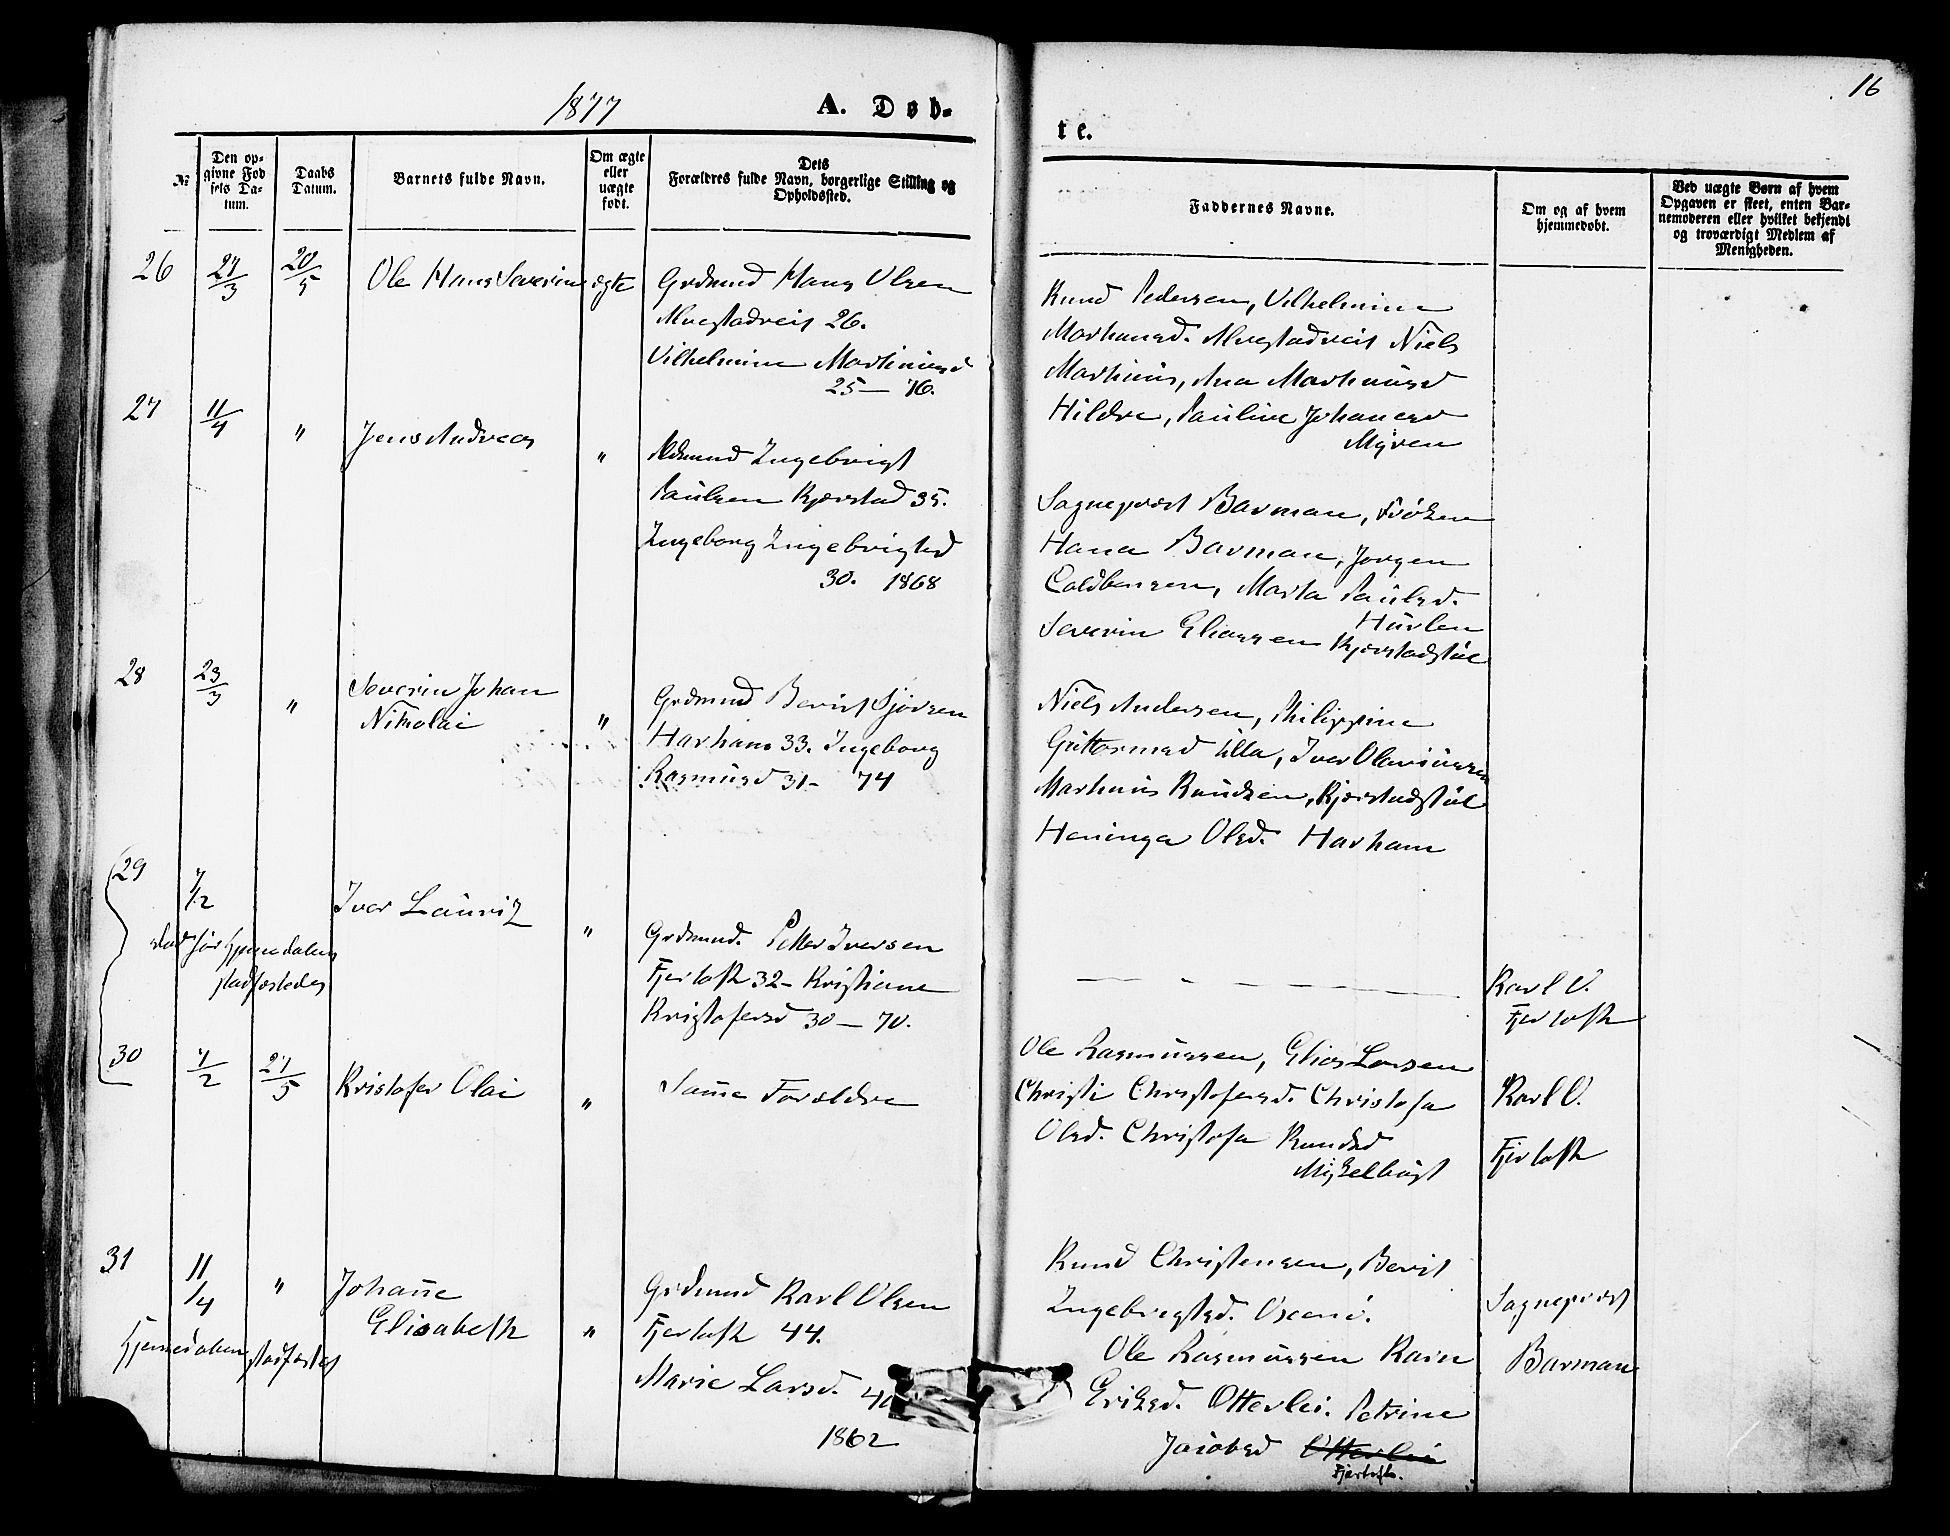 1877
A. Døb-
te.
16
№
Den op-
givne Fød
sels Da-
tum.
Daabs
Datum.
Barnets fulde Navn.
Om ægte
eller
uægte
født.
Dets
Forældres fulde Navn, borgerlige Stilling og
Opholdssted.
Faddernes Navne.
Om og af hvem
hjemmedøbt.
Ved uægte Børn af hvem
Opgaven er skeet, enten Bar-
nemoderen eller hvilket bekjendt
og troværdigt Medlem af
Menigheden.
26 24/3 20/5 Ole Hans Severin ægte Grdmnd Hans Olsen
26.
Vilhelmine Martinusd
25 — 76.
Knud Pedersen, Vilhelmine
Niels
Martinus, Ana Martinusd
Hildre, Pauline Johanesd
Myren
27 11/4 " Jens Andreas " Ingebrigt
Paulsen Kjerstad 35.
Ingeborg Ingebrigtsd
30. 1868
Sognepræst Barman, Frøken
Hana Barman, Jørgen
Marta Paulsd.
Hurlen
Severin Eliassen Kjerstadstøl
28 23/3 " Severin Johan
Nikolai " Grdmnd Berint Sjørsen
Harham 33. Ingeborg
Rasmusd 31 - 74
Niels Andersen, Philippine
Guttormsd Ulla, Iver Olavsussen
Martinus Knudsen, Kjerstadstøl
Heninga Olsd. Harham
29 7/2 Iver Lauritz " Grdmnd. Petter Iversen
død før Hjemedaben
stadfæstedes
Fjertoft 32 - Kristiane
Kristofersd 30 — 70.
Karl O.
Fjertoft
30 7/2 27/5 Kristofer Olai " Samme Forældre
Ole Rasmussen, Elias Larsen
Christi Christofersd. Christofa
Olsd. Christofa Knudsd
Miskelbust
Karl O.
Fjertoft
31 11/4 " Johanne
Elisabeth " Grdmnd Karl Olsen
Hjemedaben stadfæstet
Fjertoft 44.
Marie Larsd. 40
1862
Knud Christensen, Berit
Ingebrigtsd. Oxenø.
Ole Rasmussen Karn
Eriksd. Otterlei. Petrine
Jacobsd Otterlei
Fjertoft.
Sognepræst
Barman